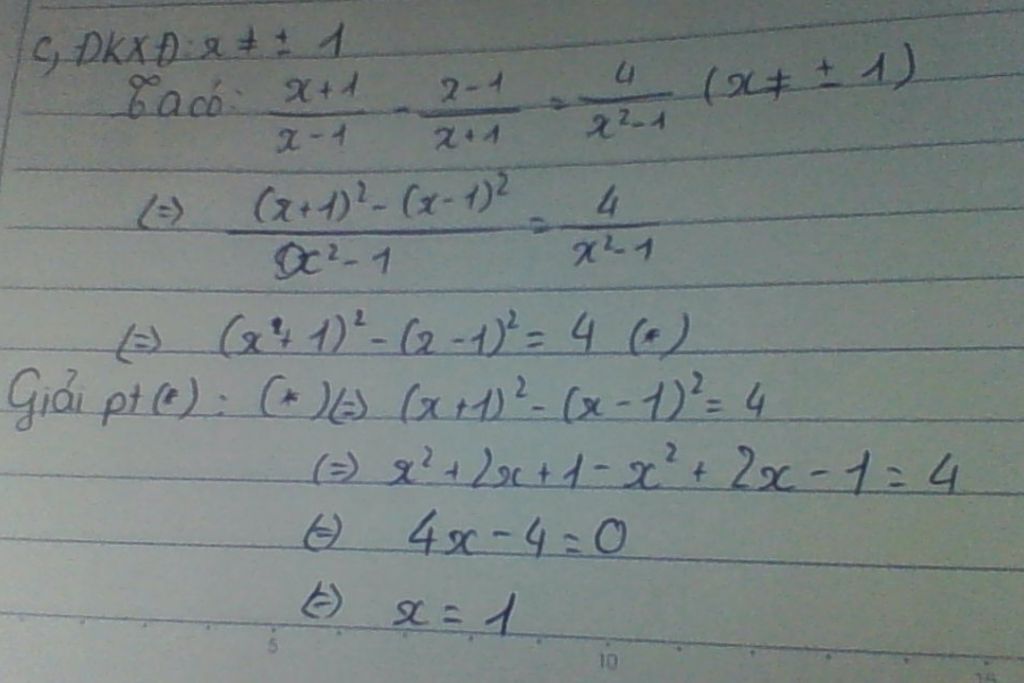 c, ĐKXĐ: x ≠ ± 1
Ta có: (x+1)/(x-1) - (x-1)/(x+1) = 4/(x²-1) (x ≠ ± 1)
(=) ((x+1)² - (x-1)²)/(x²-1) = 4/(x²-1)
(=) (x+1)² - (x-1)² = 4 (*)
Giải pt(*) : (*) (=) (x+1)² - (x-1)² = 4
(=) x² + 2x + 1 - x² + 2x - 1 = 4
(=) 4x - 4 = 0
(=) x = 1
5 10 15